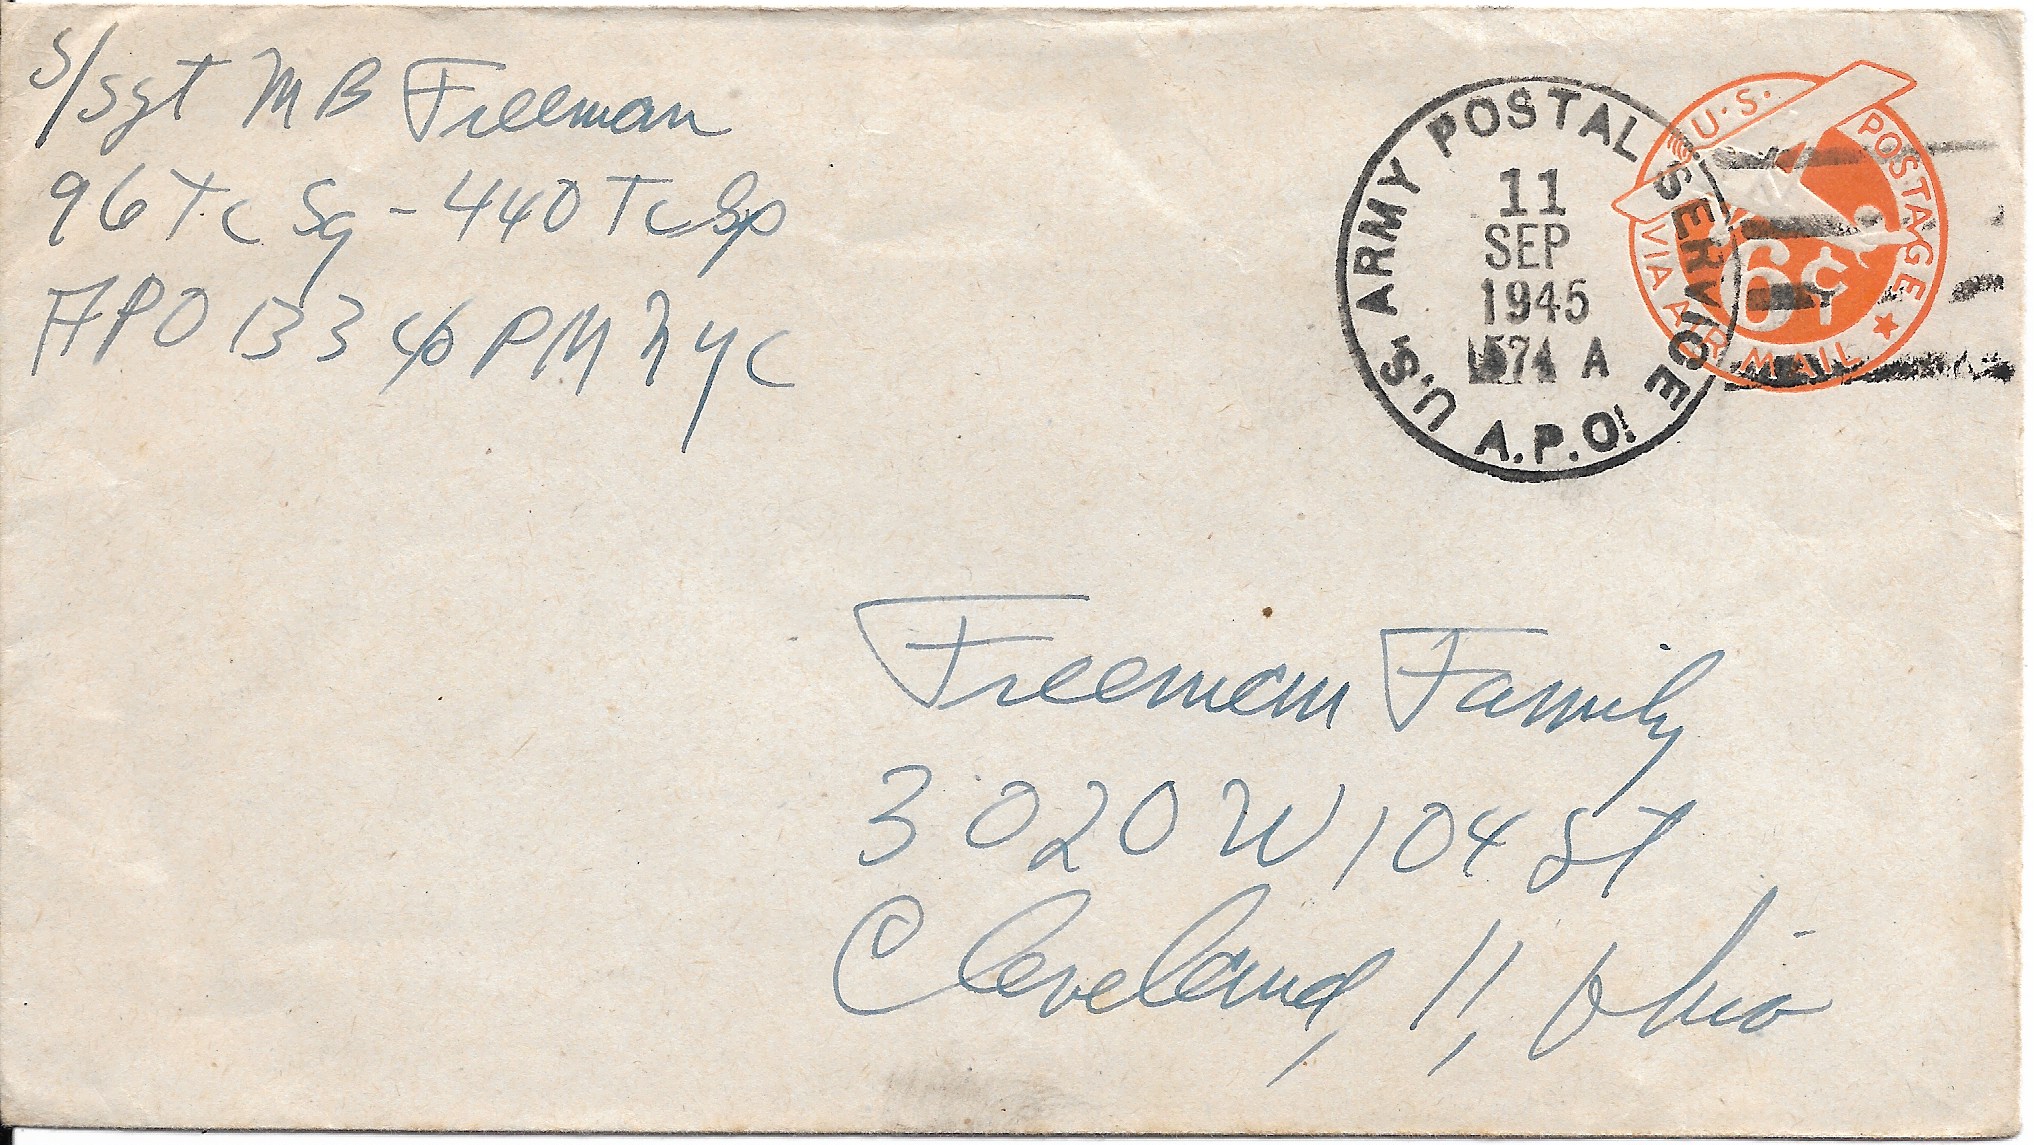 S/Sgt M B Freeman
96 Tc Sq - 440 Tc Gp
APO 133 c/o PM NYC
U.S. ARMY POSTAL SERVICE
11
SEP
1945
574 A
A.P.O.
U.S. POSTAGE
6¢
VIA AIR MAIL
Freeman Family
3020 W 104 St
Cleveland, 11, Ohio